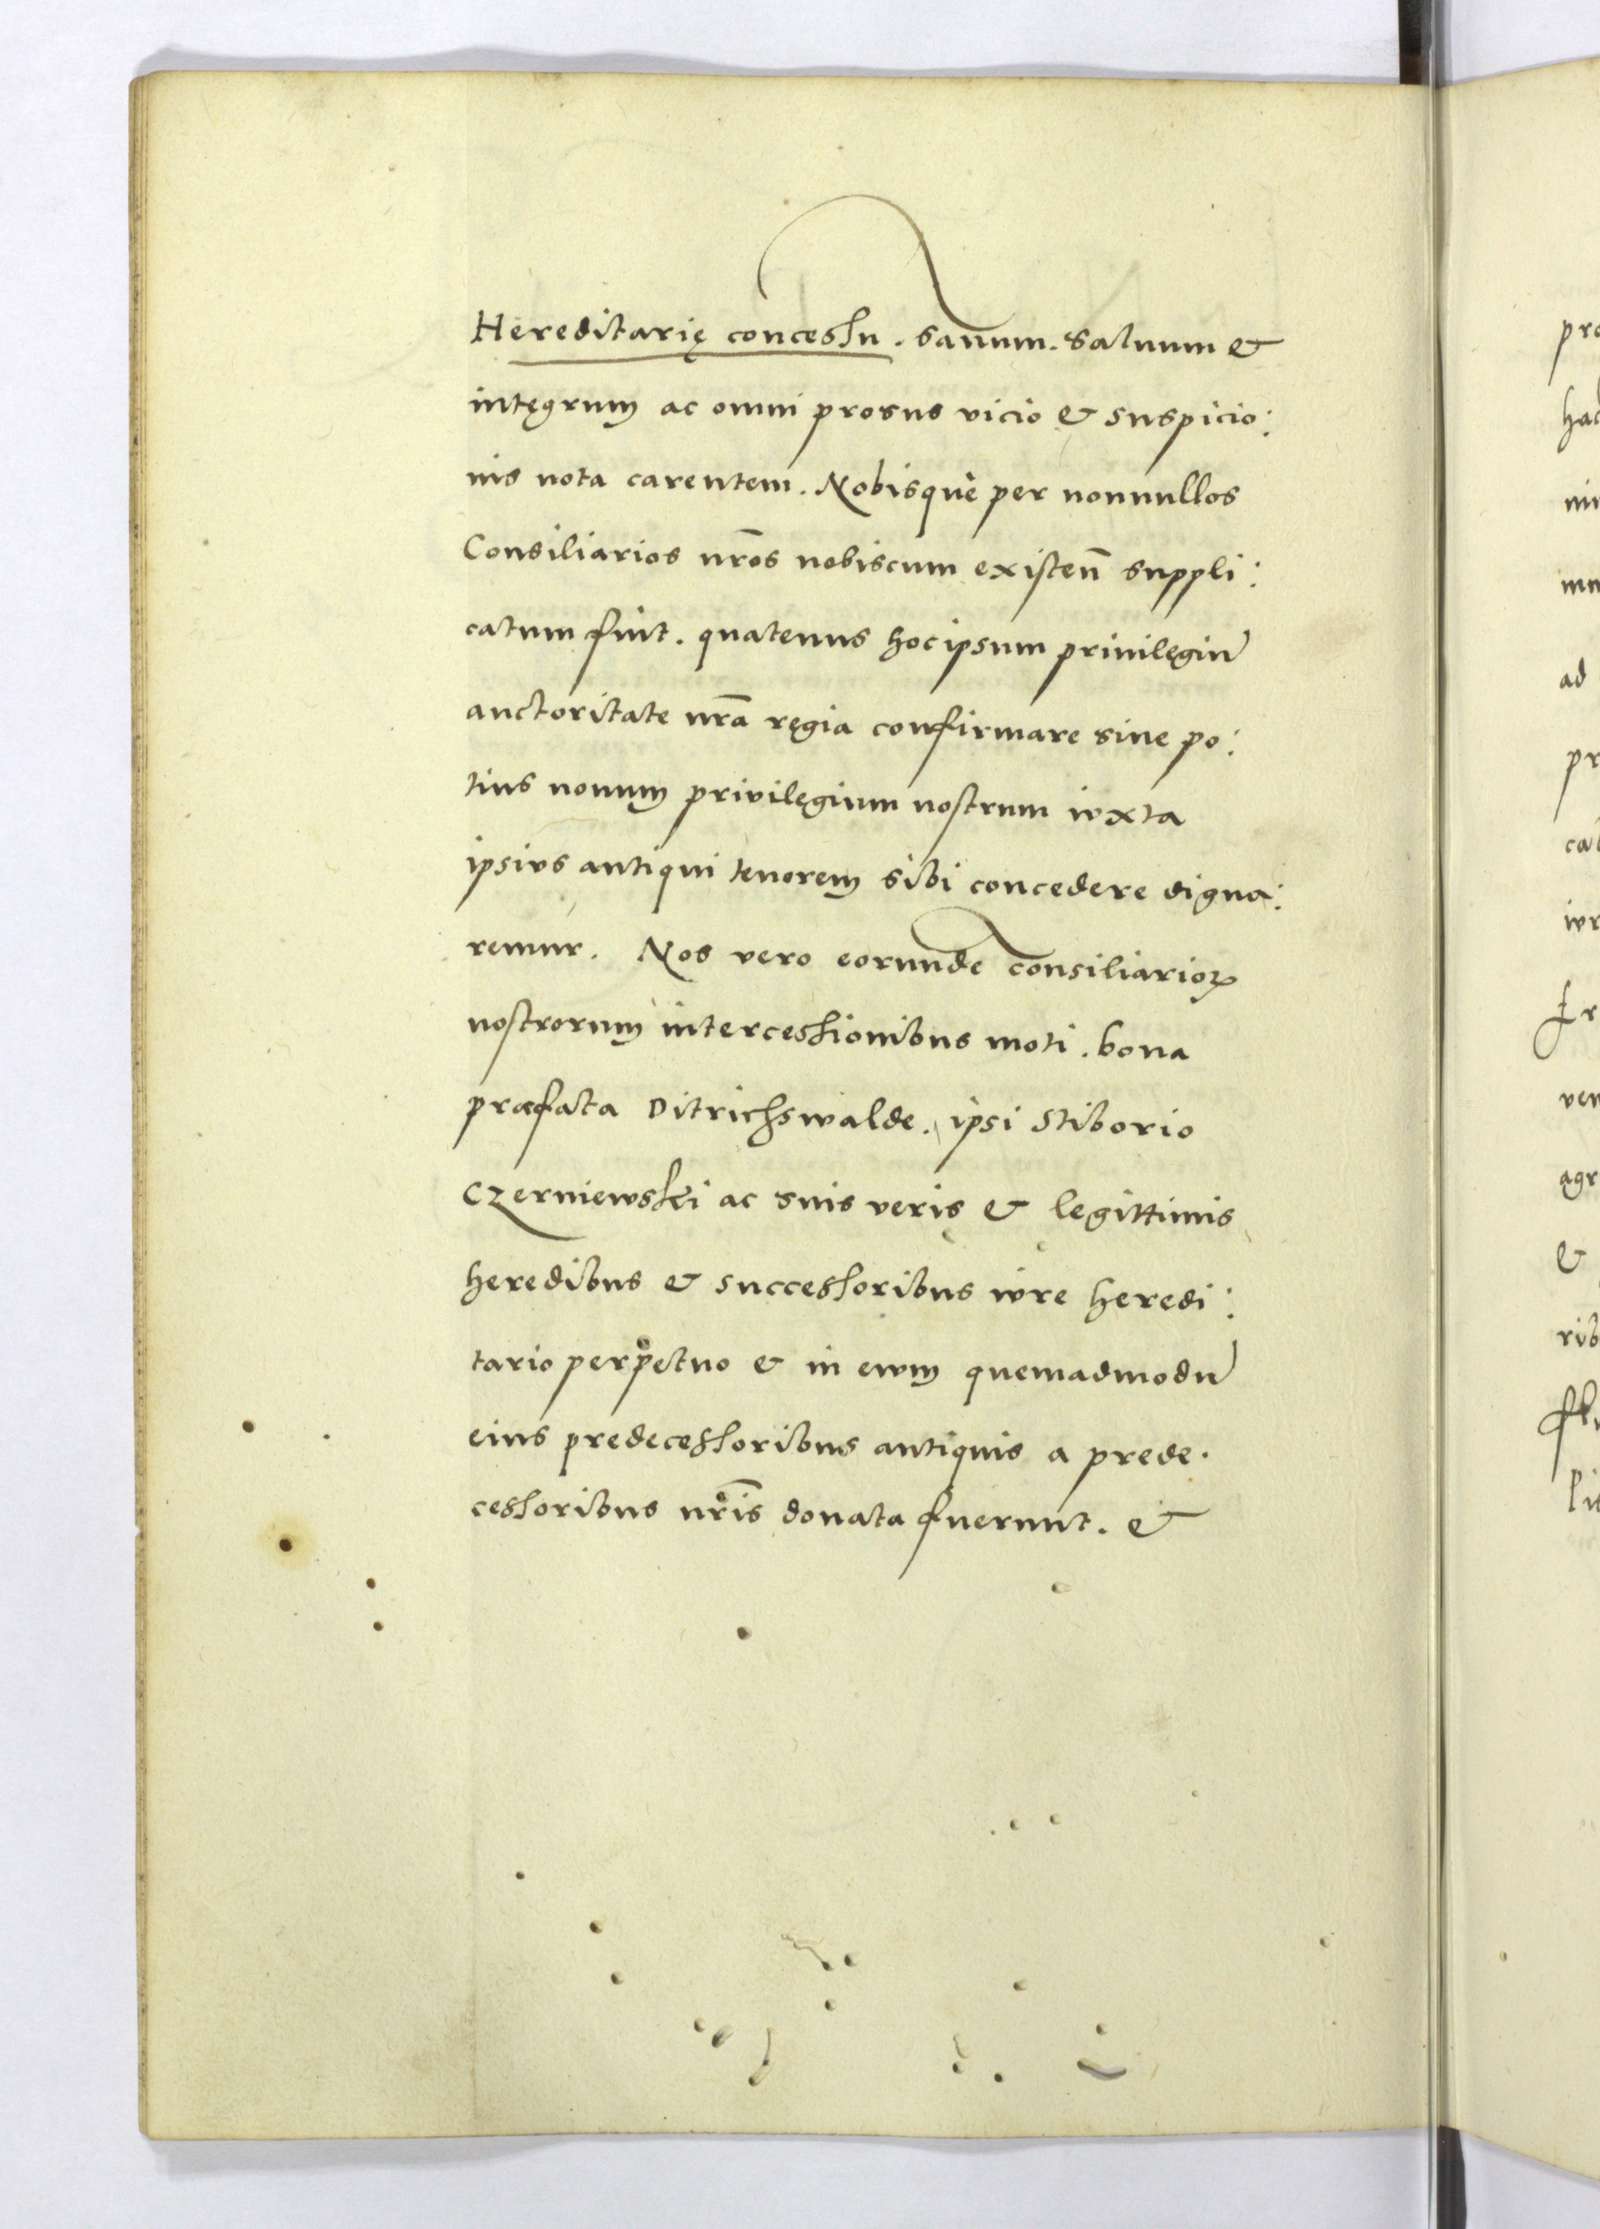 Hereditarię concessu. sanum. saluum &
intęgrum ac omni prosus vicio & suspicio:
nis nota carentem. Nobisquè per nonnullos
Consiliarios nr̄os nobiscum existen̄ suppli:
catum fuit. quatenus hoc ipsum priuilęgiū
auctoritate nr̄a ręgia confirmare siue po:
tius nouum privilęgium nostrum iuxta
ipsius antiqui tenorem sibi concedere digna:
remur. Nos vero eorunde consiliarioꝝ
nostrorum intercessionibus moti. bona
præfata Ditrichswalde. ipsi Stiborio
Czerniewski ac suis veris & legittimis
heredibus & successoribus iure heredi:
tario perpetuo & in ewm quemadmodū
eius predecessoribus antiquis a prede.
cessoribus nr̄is donata fuerunt. &
pro
ad
pr
agr
&
rib